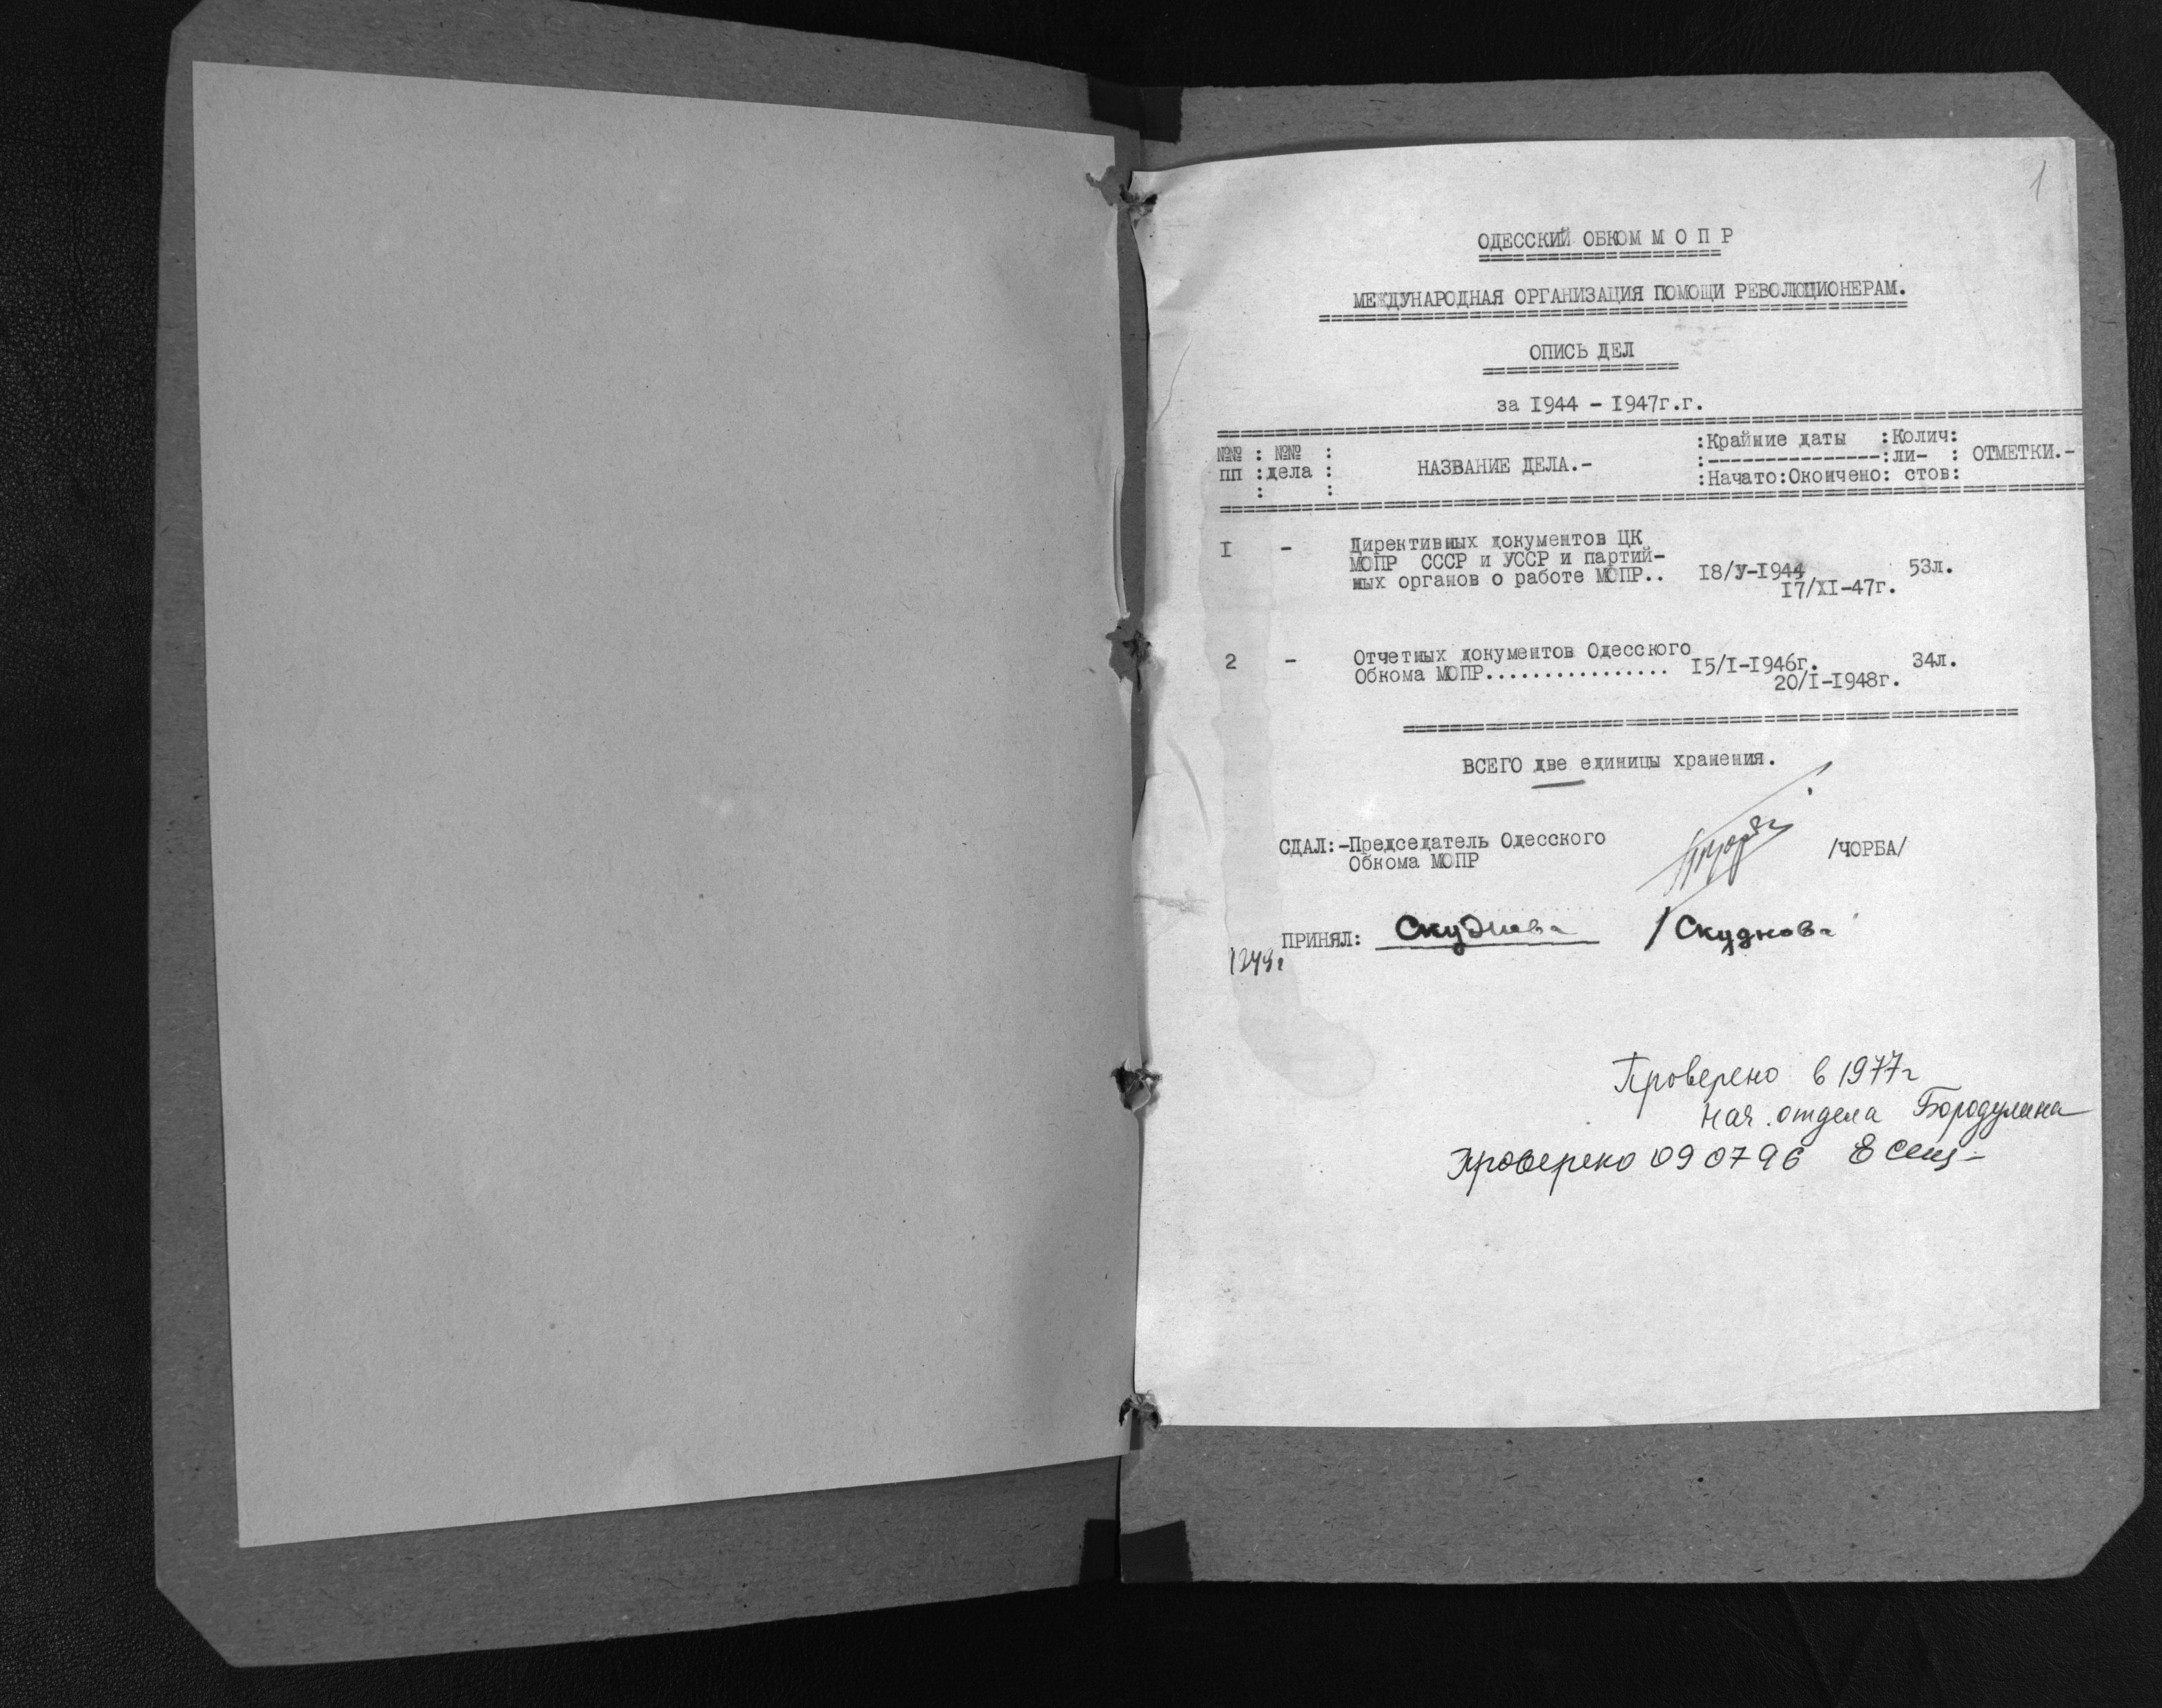 1
ОДЕССКИЙ ОБКОМ М О П Р
МЕЖДУНАРОДНАЯ ОРГАНИЗАЦИЯ ПОМОЩИ РЕВОЛЮЦИОНЕРАМ.
ОПИСЬ ДЕЛ
за 1944 - 1947г.г.
№№ : №№ : :Крайние даты :Колич:
пп :дела : НАЗВАНИЕ ДЕЛА.- :---------------:ли- : ОТМЕТКИ.-
: : :Начато:Окончено: стов:
I - Директивных документов ЦК
МОПР СССР и УССР и партий-
ных органов о работе МОПР.. 18/У-1944 53л.
17/XI-47г.
2 - Отчетных документов Одесского
Обкома МОПР................ 15/I-1946г. 34л.
20/I-1948г.
ВСЕГО две единицы хранения.
СДАЛ:-Председатель Одесского
Обкома МОПР /ЧОРБА/
ПРИНЯЛ: Скуднова /Скуднова
Проверено в 1977г
нач. отдела Бородулина
Проверено 09 07 96